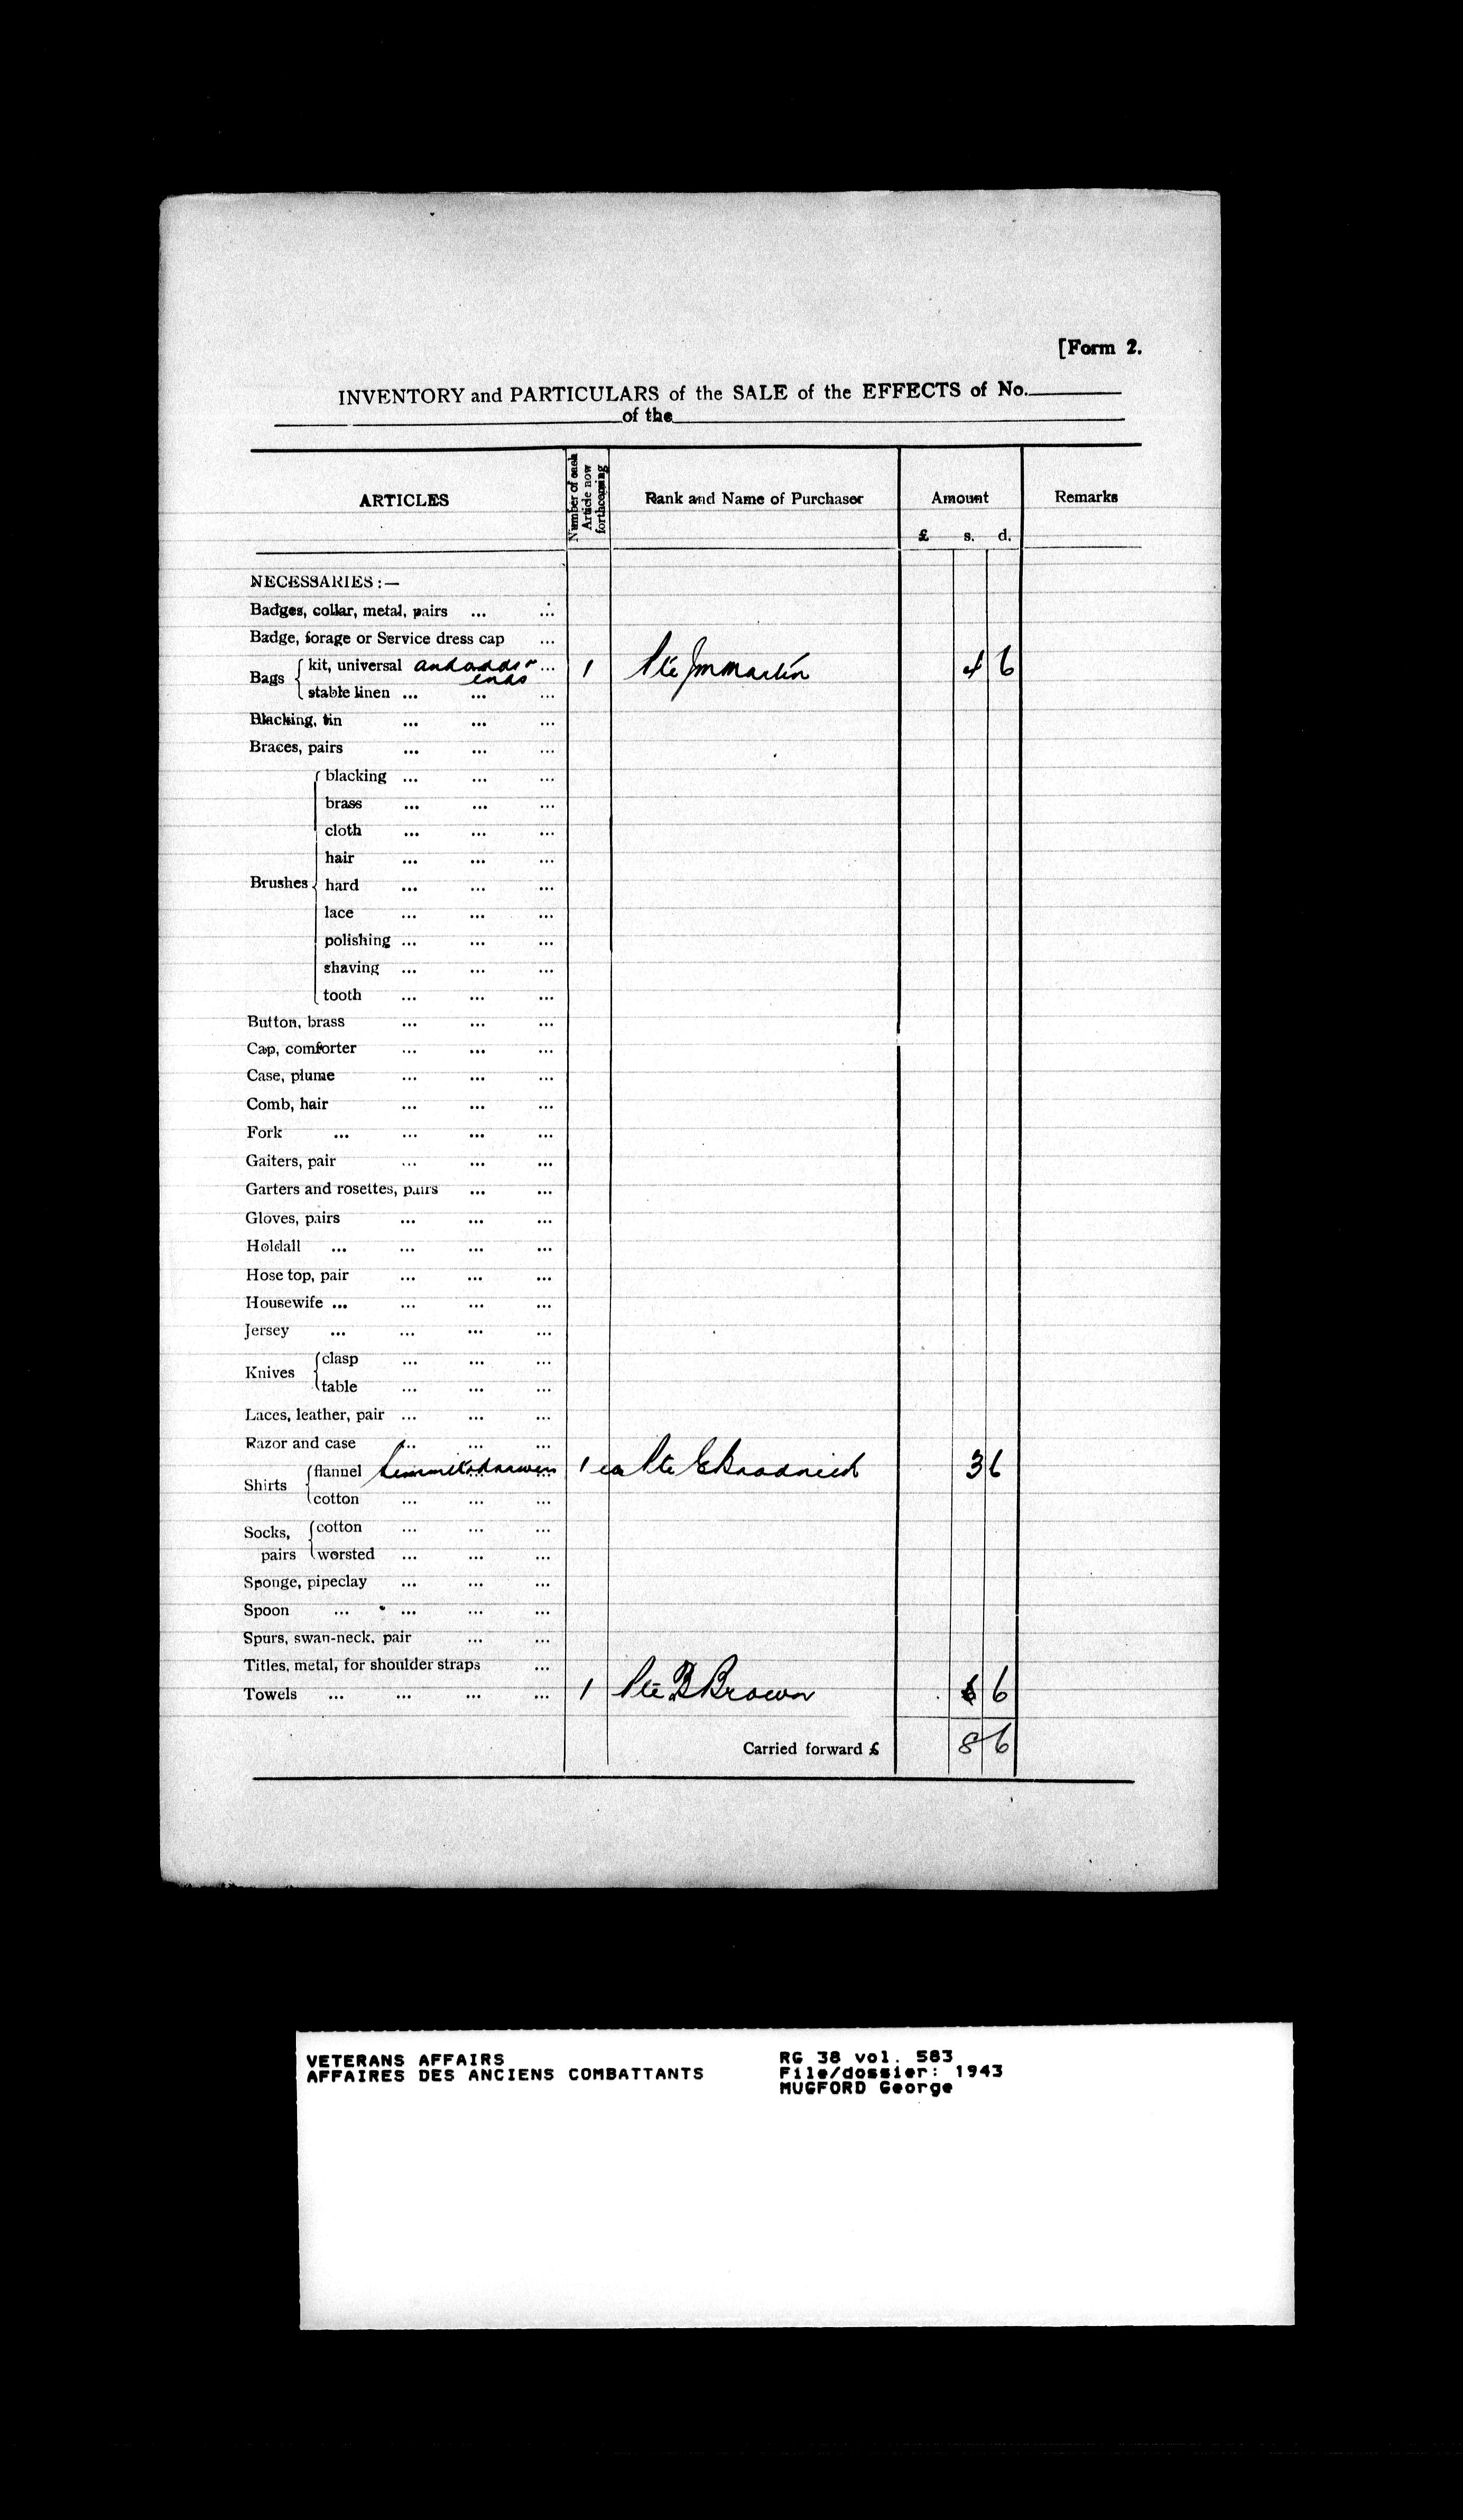 [Form 2.
INVENTORY and PARTICULARS of the SALE of the EFFECTS of No.
of the
ARTICLES
Number of each Article now forthcoming
Rank and Name of Purchaser
Amount
Remarks
£ s. d.
NECESSARIES :—
Badges, collar, metal, pairs ... ...
Badge, forage or Service dress cap ...
Bags { kit, universal and odds & ends ... 1 Pte J M Martin 4 6
stable linen ... ... ...
Blacking, tin ... ... ...
Braces, pairs ... ... ...
Brushes { blacking ... ... ...
brass ... ... ...
cloth ... ... ...
hair ... ... ...
hard ... ... ...
lace ... ... ...
polishing ... ... ...
shaving ... ... ...
tooth ... ... ...
Button, brass ... ... ...
Cap, comforter ... ... ...
Case, plume ... ... ...
Comb, hair ... ... ...
Fork ... ... ... ...
Gaiters, pair ... ... ...
Garters and rosettes, pairs ... ...
Gloves, pairs ... ... ...
Holdall ... ... ... ...
Hose top, pair ... ... ...
Housewife ... ... ... ...
Jersey ... ... ... ...
Knives { clasp ... ... ...
table ... ... ...
Laces, leather, pair ... ... ...
Razor and case ... ... ...
Shirts { flannel 1 ea Pte 3 6
cotton ... ... ...
Socks, pairs { cotton ... ... ...
worsted ... ... ...
Sponge, pipeclay ... ... ...
Spoon ... ... ... ...
Spurs, swan-neck, pair ... ...
Titles, metal, for shoulder straps ...
Towels ... ... ... ... 1 Pte B Brown 6
Carried forward £ 8 6
VETERANS AFFAIRS
AFFAIRES DES ANCIENS COMBATTANTS
RG 38 vol. 583
File/dossier: 1943
MUGFORD George